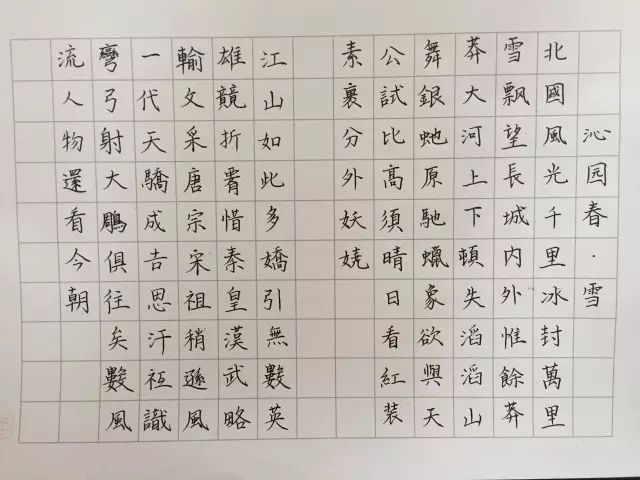 沁园春·雪
北國風光千里冰封萬里
雪飄望長城内外惟餘莽
莽大河上下頓失滔滔山
舞銀虵原馳蠟象欲與天
公試比高須晴日看紅装
素裹分外妖嬈
江山如此多嬌引無數英
雄競折惜秦皇漢武略
輸文采唐宗宋祖稍遜風
一代天驕成吉思汗衹識
彎弓射大鵰俱往矣數風
流人物還看今朝